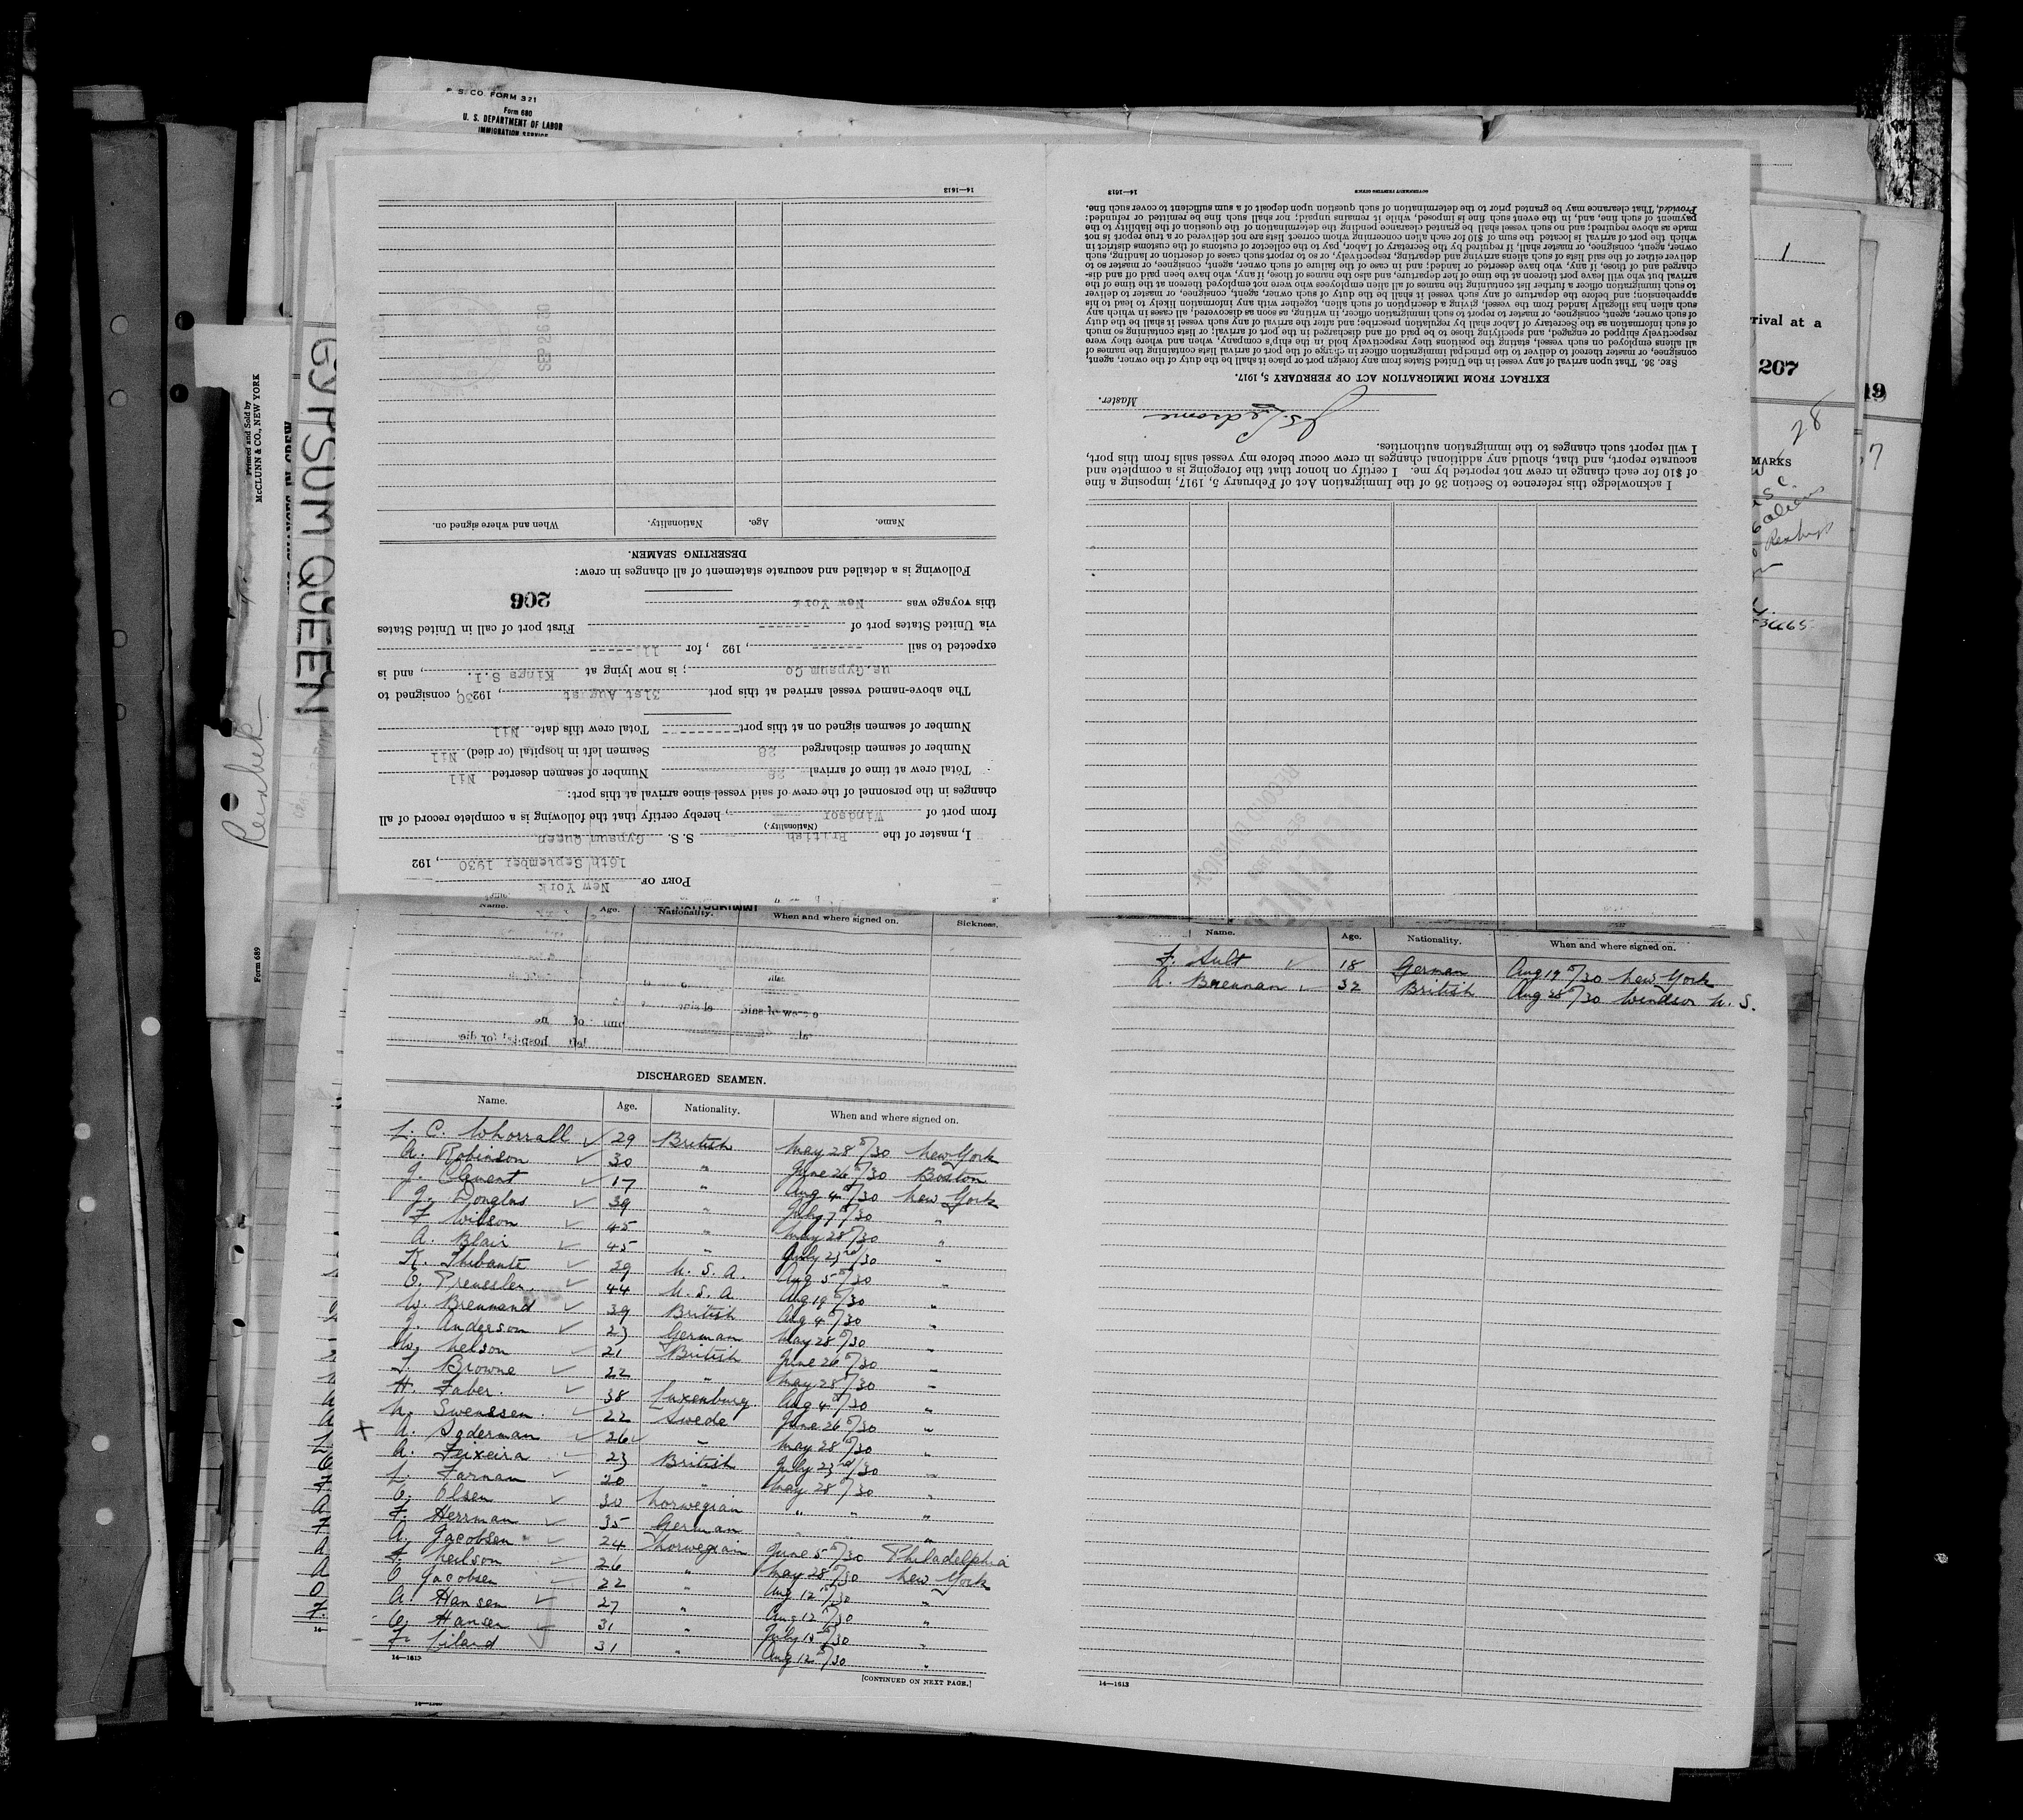 P. S. CO. FORM 321
Form 680
U. S. DEPARTMENT OF LABOR
IMMIGRATION SERVICE
GYPSUM QUEEN
Printed and Sold by
McCLUNN & CO., NEW YORK
Form 689
1
rival at a
207
19
28
7
MARKS
PORT OF New York
16th September 1930, 192
I, master of the British S. S. Gypsum Queen
(Nationality.)
from port of Windsor, hereby certify that the following is a complete record of all
changes in the personnel of the crew of said vessel since arrival at this port:
Total crew at time of arrival 28 Number of seamen deserted Nil
Number of seamen discharged 28 Seamen left in hospital (or died) Nil
Number of seamen signed on at this port Total crew this date Nil
The above-named vessel arrived at this port 31st August, 1930, consigned to
us. Gypsum Co; is now lying at Kings S.I., and is
expected to sail ------, 192 , for
via United States port of ------ First port of call in United States
this voyage was New York
206
Following is a detailed and accurate statement of all changes in crew:
DESERTING SEAMEN.
Name. Age. Nationality. When and where signed on.
SEP 26 30
14—1613
I acknowledge this reference to Section 36 of the Immigration Act of February 5, 1917, imposing a fine
of $10 for each change in crew not reported by me. I certify on honor that the foregoing is a complete and
accurate report, and that, should any additional changes in crew occur before my vessel sails from this port,
I will report such changes to the immigration authorities.
Master.
EXTRACT FROM IMMIGRATION ACT OF FEBRUARY 5, 1917.
SEC. 36. That upon arrival of any vessel in the United States from any foreign port or place it shall be the duty of the owner, agent,
consignee, or master thereof to deliver to the principal immigration officer in charge of the port of arrival lists containing the names of
all aliens employed on such vessel, stating the positions they respectively hold in the ship's company, when and where they were
respectively shipped or engaged, and specifying those to be paid off and discharged in the port of arrival; or lists containing so much
of such information as the Secretary of Labor shall by regulation prescribe; and after the arrival of any such vessel it shall be the duty
of such owner, agent, consignee, or master to report to such immigration officer, in writing, as soon as discovered, all cases in which any
such alien has illegally landed from the vessel, giving a description of such alien, together with any information likely to lead to his
apprehension; and before the departure of any such vessel it shall be the duty of such owner, agent, consignee, or master to deliver
to such immigration officer a further list containing the names of all alien employees who were not employed thereon at the time of the
arrival but who will leave port thereon at the time of her departure, and also the names of those, if any, who have been paid off and dis-
charged and of those, if any, who have deserted or landed; and in case of the failure of such owner, agent, consignee, or master so to
deliver either of the said lists of such aliens arriving and departing, respectively, or so to report such cases of desertion or landing, such
owner, agent, consignee, or master, shall, if required by the Secretary of Labor, pay to the collector of customs of the customs district in
which the port of arrival is located the sum of $10 for each alien concerning whom correct lists are not delivered or a true report is not
made as above required; and no such vessel shall be granted clearance pending the determination of the question of the liability to the
payment of such fine, and, in the event such fine is imposed, while it remains unpaid; nor shall such fine be remitted or refunded:
Provided, That clearance may be granted prior to the determination of such question upon deposit of a sum sufficient to cover such fine.
GOVERNMENT PRINTING OFFICE
14—1613
Name. Age. Nationality. When and where signed on. Sickness.
DISCHARGED SEAMEN.
Name. Age. Nationality. When and where signed on.
L. C. Whorrall 29 British May 28th/30 New York
A. Robinson 30 " June 26th/30 Boston
J. Clement 17 " Aug 4th/30 New York
J. Douglas 39 " July 7th/30 "
F. Wilson 45 " May 28th/30 "
A. Blair 45 " July 23rd/30 "
K. Thibante 29 U. S. A. Aug 5th/30 "
O. Preussler 44 U. S. A Aug 19th/30 "
W. Brennand 39 British Aug 4th/30 "
J. Anderson 23 German May 28th/30 "
W. Nelson 21 British June 26th/30 "
L. Browne 22 " May 28th/30 "
H. Faber. 38 Luxenburg. Aug 4th/30 "
N. Swenssen. 22 Swede June 26th/30 "
A. Soderman 26 " May 28th/30 "
A. Teixeira 23 British July 23rd/30 "
L. Farnan 20 " May 28th/30 "
O. Olsen 30 Norwegian " " "
F. Herrman 35 German " "
A. Jacobsen 24 Norwegian June 5th/30 Philadelphia
F. Neilson 26 " May 28th/30 New York
O Jacobsen 22 " Aug 12th/30 "
A. Hansen 27 " Aug 12th/30 "
O. Hansen 31 " July 15th/30 "
F. Liland 31 " Aug 12th/30 "
14—1613
[CONTINUED ON NEXT PAGE.]
Name. Age. Nationality. When and where signed on.
F. Ault 18 German Aug 19th/30 New York
A. Brennan 32 British Aug 28th/30 Windsor N. S.
14—1613